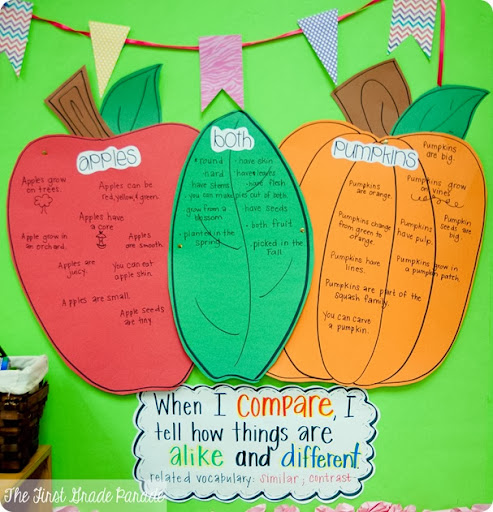 apples
Apples grow
on trees.
Apples can be
red, yellow, & green.
Apples have
a core
Apple grow in
an orchard.
Apples
are smooth.
Apples are
juicy.
You can eat
apple skin.
Apples are small.
Apple seeds
are tiny.
both
round
hard
have stems
you can make pies out of both.
grow from a
blossom
planted in the
spring
have skin
have leaves
have flesh
have seeds
both fruit
picked in the
fall
pumpkins
Pumpkins
are big.
Pumpkins
are orange.
Pumpkins grow
on vines
Pumpkins change
from green to
orange.
Pumpkins
have pulp.
Pumpkin
seeds are
big.
Pumpkins have
lines.
Pumpkins grow in
a pumpkin patch.
Pumpkins are part of the
squash family.
you can carve
a pumpkin.
When I compare, I
tell how things are
alike and different.
related vocabulary: similar, contrast
The First Grade Parade